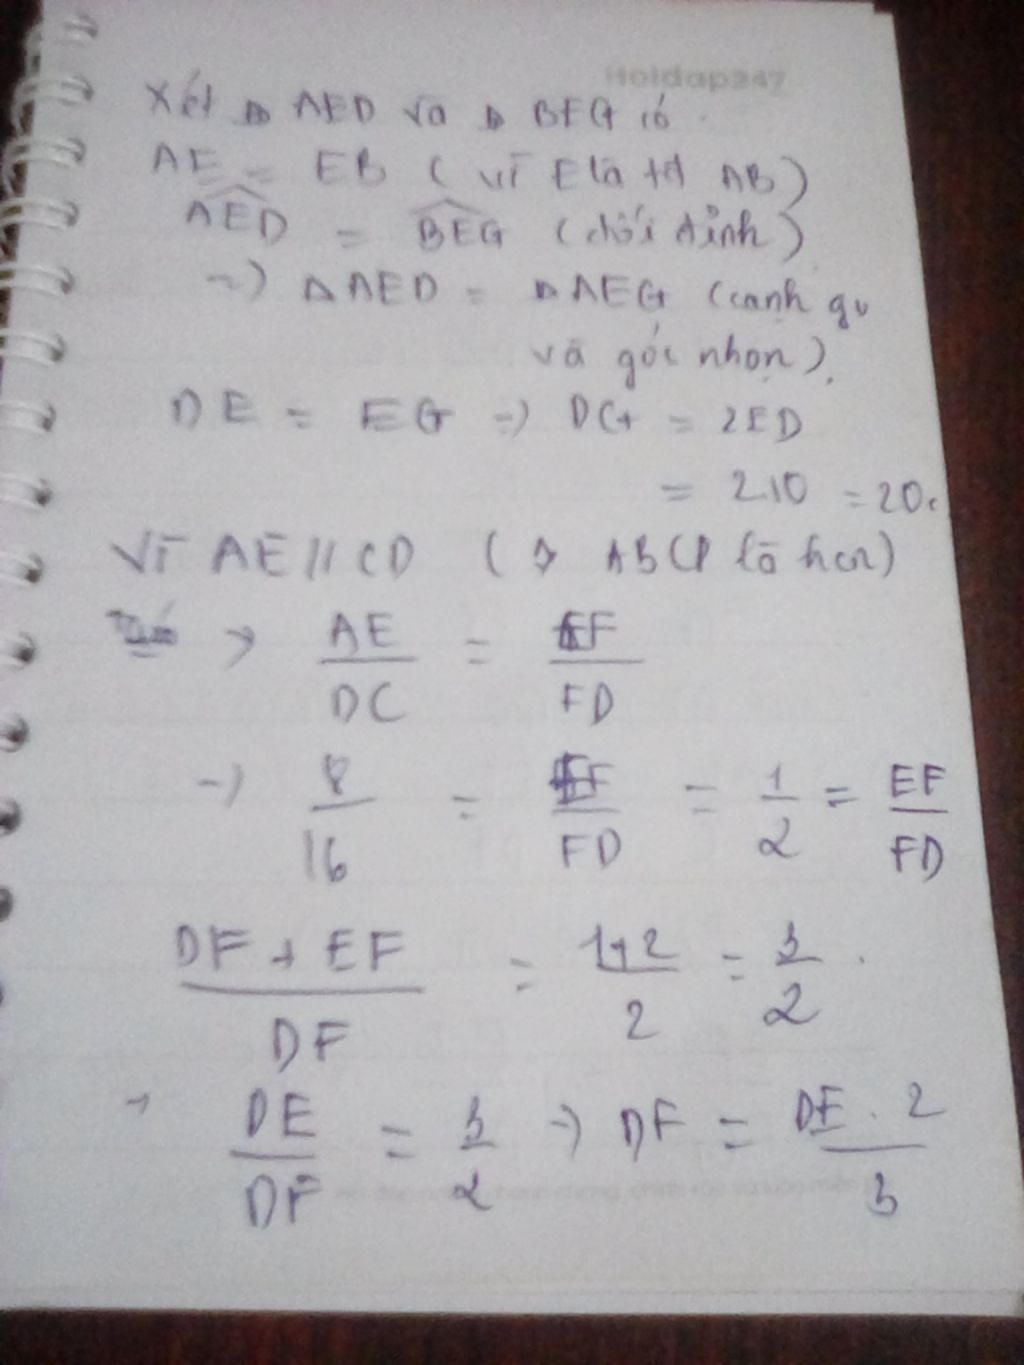 Hoidap247
Xét Δ AED và Δ BEG có
AE = EB ( vì E là tđ AB)
AED = BEG (đối đỉnh)
=) Δ AED = Δ AEG (cạnh gv
và góc nhọn).
DE = EG =) DG = 2ED
= 2.10 = 20.
Vì AE // CD ( ABCD là hcn)
AE/DC = EF/FD
=) 8/16 = EF/FD = 1/2 = EF/FD
DF + EF/DF = 1+2/2 = 3/2 .
DE/DF = 3/2 =) DF = DE . 2/3